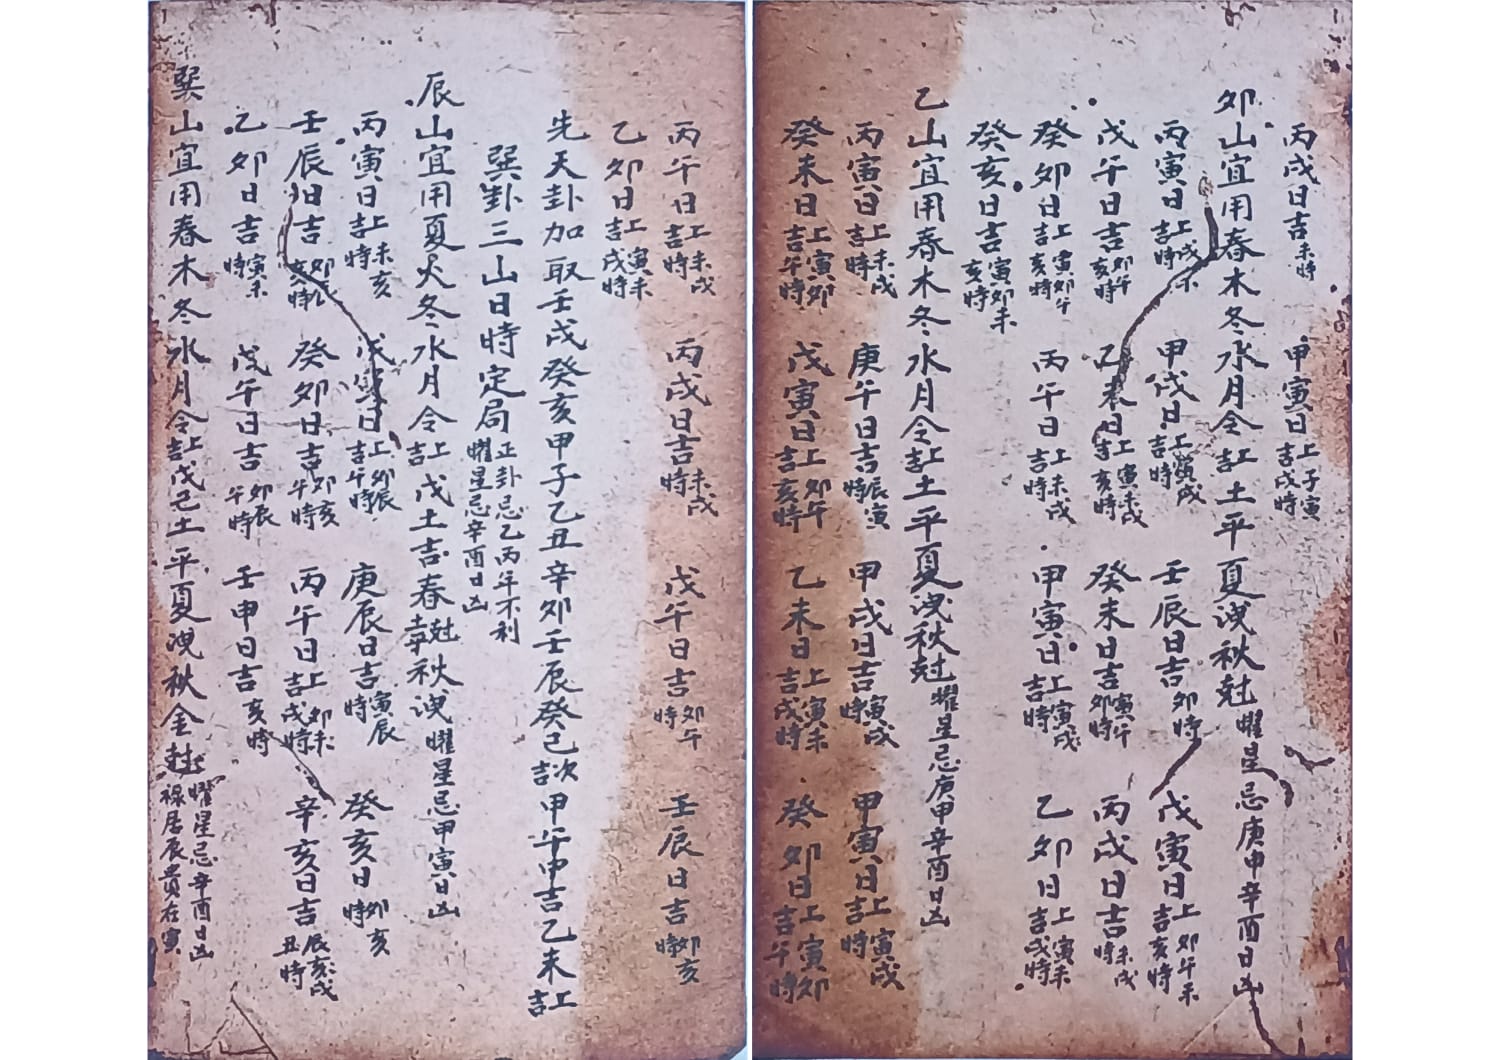 丙戌日吉未時 甲寅日上吉子寅戌時
卯山宜用春木冬水月令上吉土平夏洩秋尅曜星忌庚申辛酉日凶
丙寅日上吉戌未時 甲戌日上吉寅戌時 壬辰日吉卯時 戊寅日上吉卯午未亥時
戊午日吉卯午亥時 乙未日上吉寅未戌亥時 癸未日吉寅午卯時 丙戌日吉未戌時
癸卯日上吉寅卯午亥時 丙午日上吉未戌時 甲寅日上吉寅戌時 乙卯日上吉寅未戌時
癸亥日吉寅卯未亥時
乙山宜用春木冬水月令上吉土平夏洩秋尅曜星忌庚申辛酉日凶
丙寅日上吉未戌時 庚午日吉辰寅時 甲戌日吉寅戌時 甲寅日上吉寅戌時
癸未日上吉寅卯午時 戊寅日上吉卯午亥時 乙未日上吉寅未戌時 癸卯日上吉寅卯午時
丙午日上吉未戌時 丙戌日吉未戌時 戊午日吉卯午時 壬辰日吉卯亥時
乙卯日上吉寅未戌時
先天卦加取壬戌癸亥甲子乙丑辛卯壬辰癸巳次吉甲午申吉乙未上吉
巽卦三山日時定局正卦忌乙丙年不利曜星忌辛酉日凶
辰山宜用夏火冬水月令上吉戊土吉春尅秋洩曜星忌甲寅日凶
丙寅日上吉未亥時 戊寅日上吉卯辰午時 庚辰日吉寅辰時 癸亥日卯亥時
壬辰日吉卯亥時 癸卯日吉卯亥午時 丙午日上吉卯未戌時 辛亥日吉辰亥戌丑時
乙卯日吉寅未時 戊午日吉卯辰午時 壬申日吉亥時
巽山宜用春木冬水月令上吉戊己土平夏洩秋金尅曜星忌辛酉日凶祿居辰貴在寅